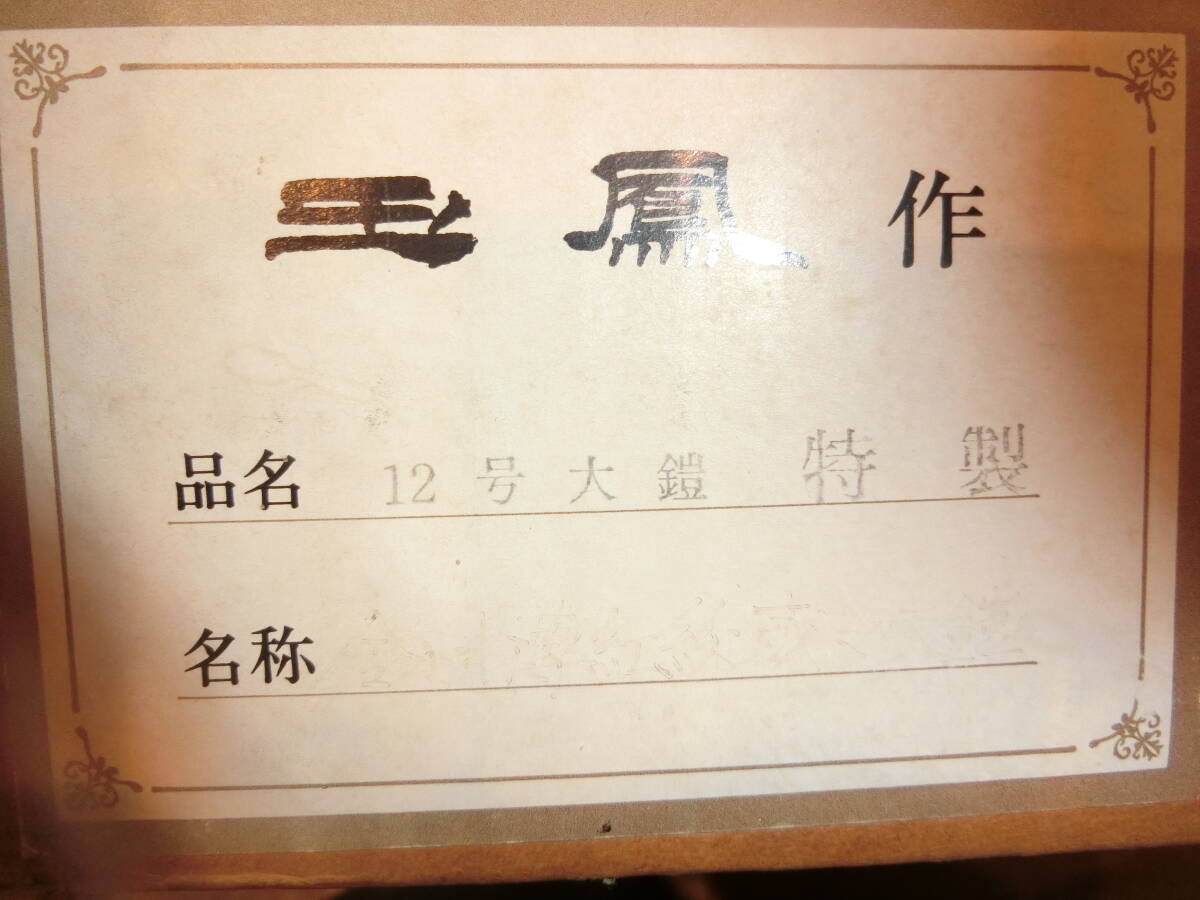 玉鳳作
品名 12号大鎧 特製
名称